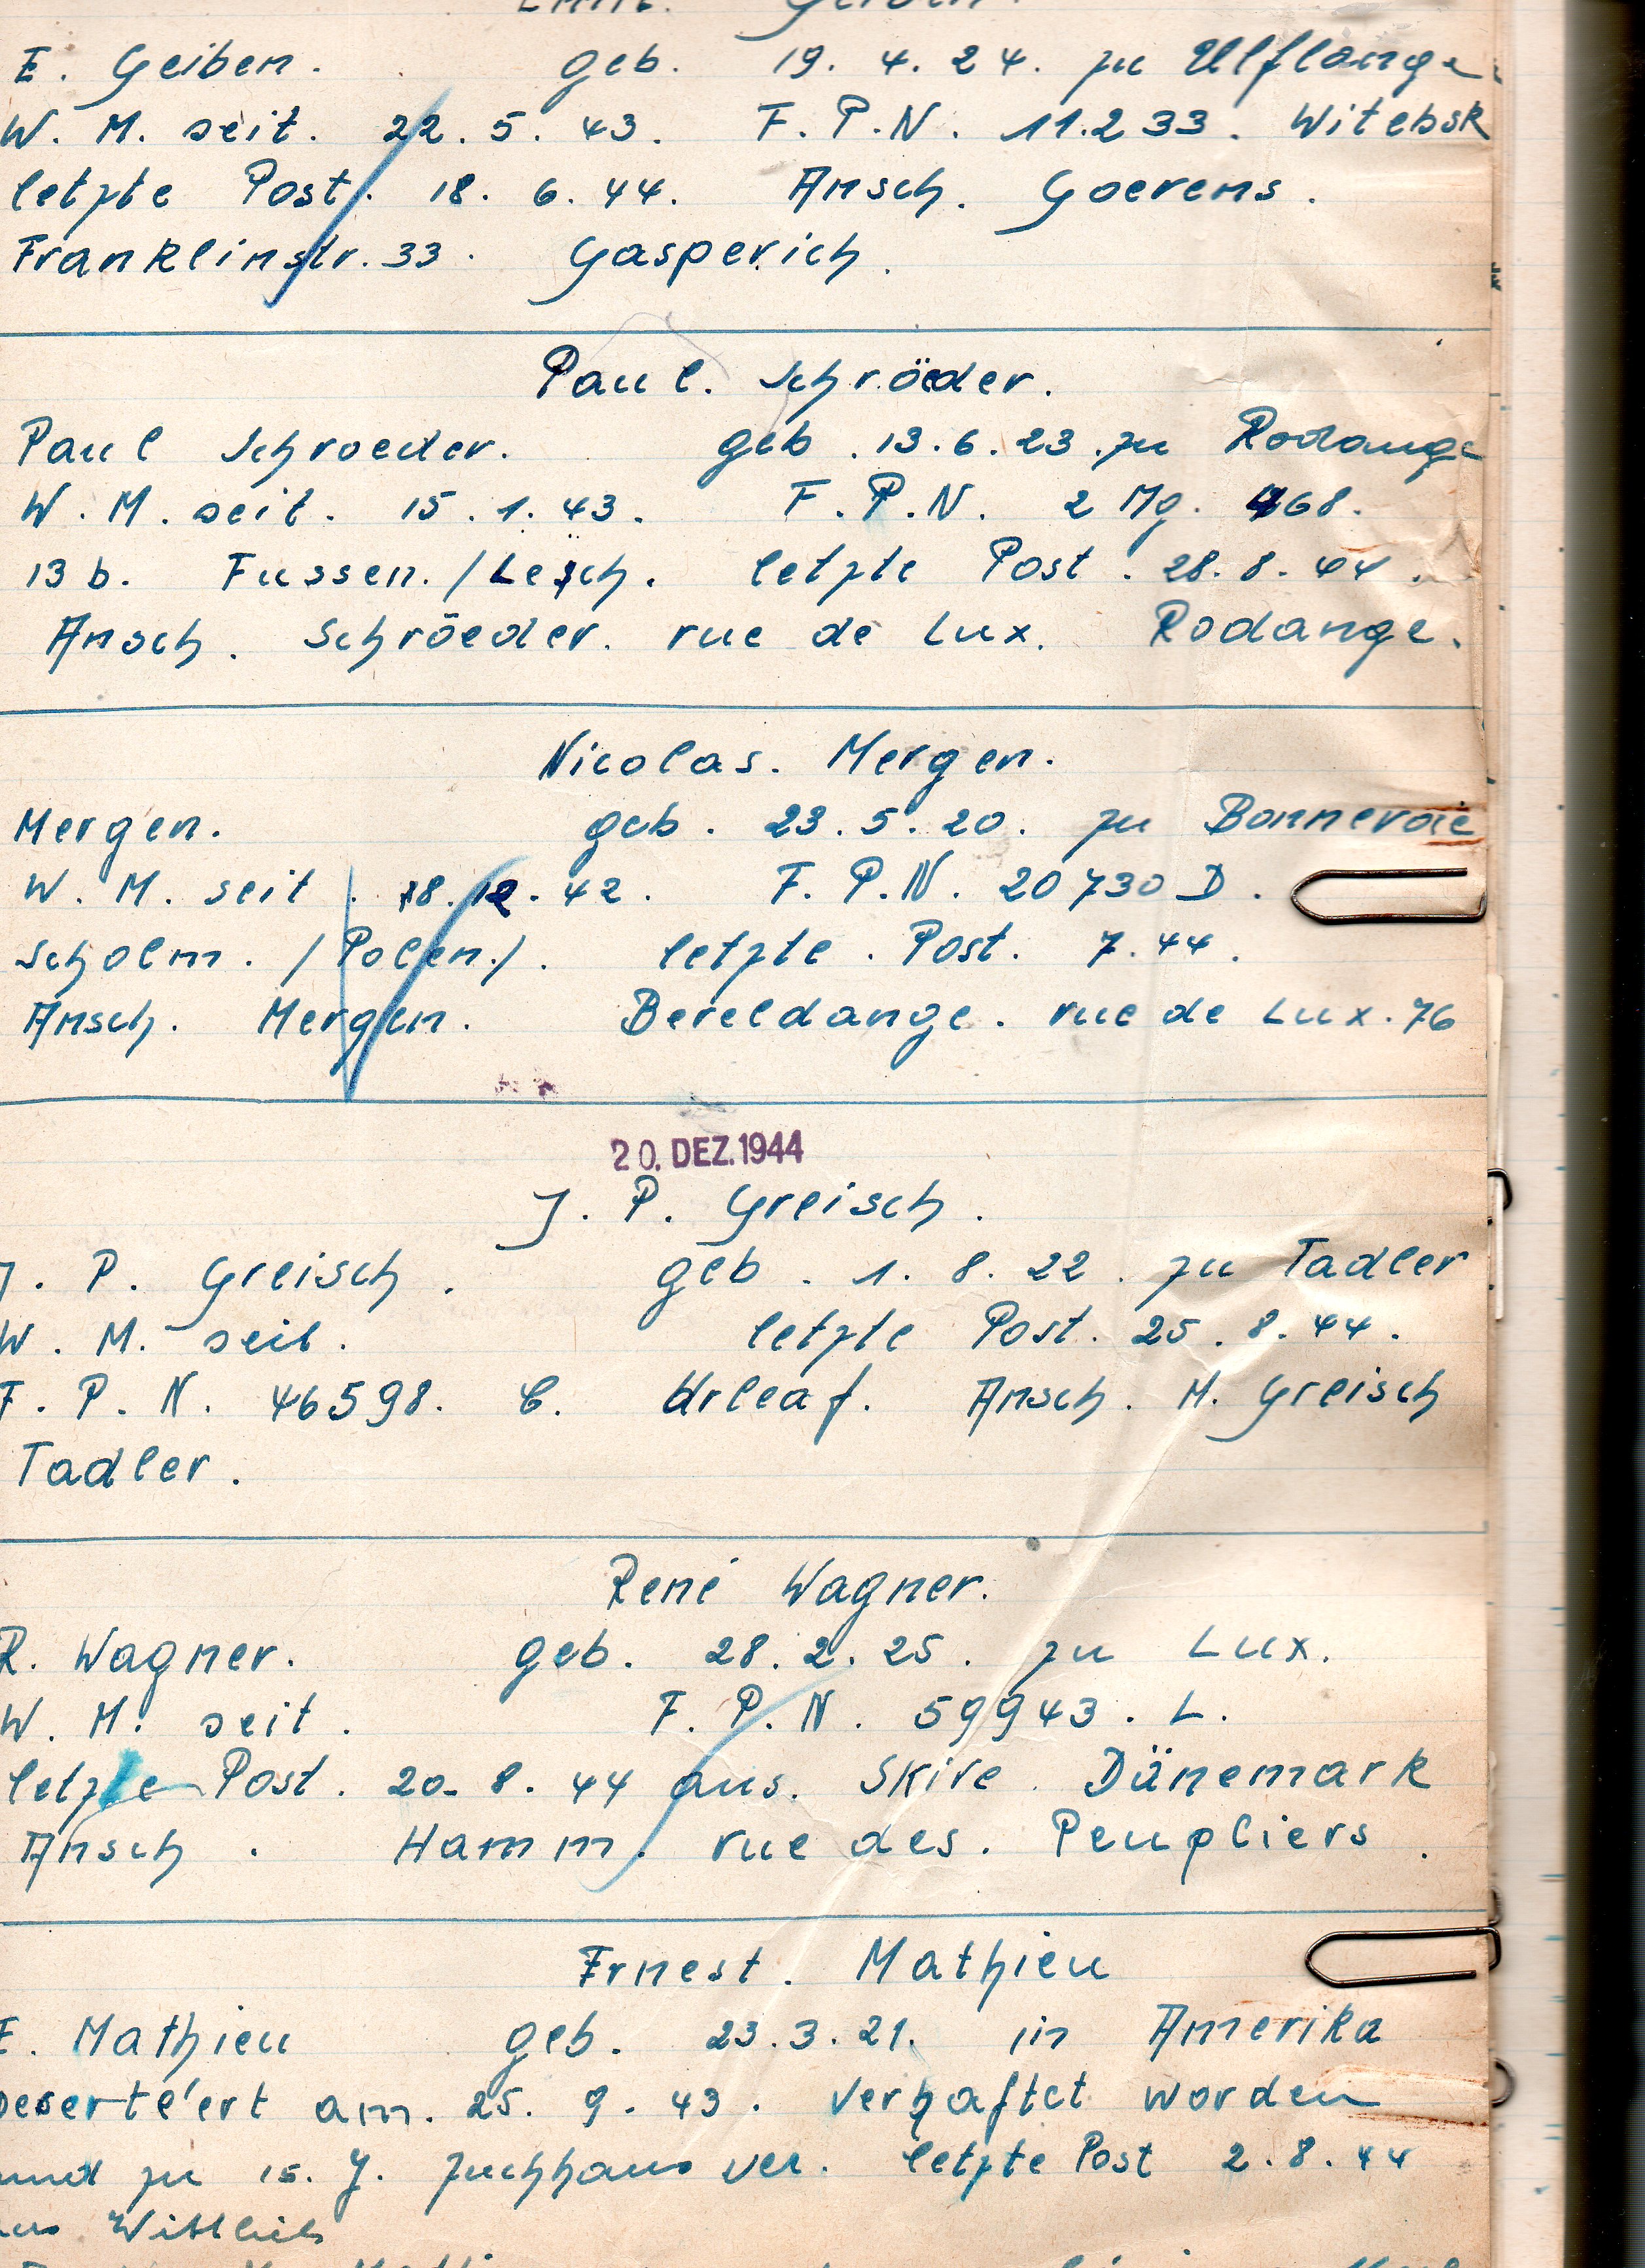 E. Geiben. geb. 19. 4. 24. zu Ulflange
W. M. seit. 22. 5. 43. F. P. N. 11.233. Witebsk
letzte Post. 18. 6. 44. Ansch. Goerens.
Franklinstr. 33. Gasperich.
Paul. Schröeder.
Paul Schroeder. geb. 13. 6. 23. zu Rodange
W. M. seit. 15. 1. 43. F. P. N. 2 Mg. 468.
13 b. Fussen. / Lesch. letzte Post. 28. 8. 44.
Ansch. Schröeder. rue de Lux. Rodange.
Nicolas. Mergen.
Mergen. geb. 23. 5. 20. zu Bonnevoie
W. M. seit. 18. 12. 42. F. P. N. 20730 D.
Scholm. / Polen. /. letzte. Post. 7. 44.
Ansch. Mergen. Bereldange. rue de Lux. 76
20. DEZ. 1944
J. P. Greisch.
J. P. Greisch. geb. 1. 8. 22. zu Tadler
W. M. seit. letzte Post. 25. 8. 44.
F. P. N. 46598. C. Urleaf. Ansch. M. Greisch
Tadler.
René Wagner.
R. Wagner. geb. 28. 2. 25. zu Lux.
W. M. seit. F. P. N. 59943. L.
letzte Post. 20. 8. 44 aus. Skive. Dänemark
Ansch. Hamm. rue des. Peupliers.
Ernest. Mathieu
E. Mathieu geb. 23. 3. 21. in Amerika
Deserte'ert am. 25. 9. 43. verhaftet worden
und zu 15. J. Zuchhaus ver. letzte Post 2. 8. 44
aus Wittlich